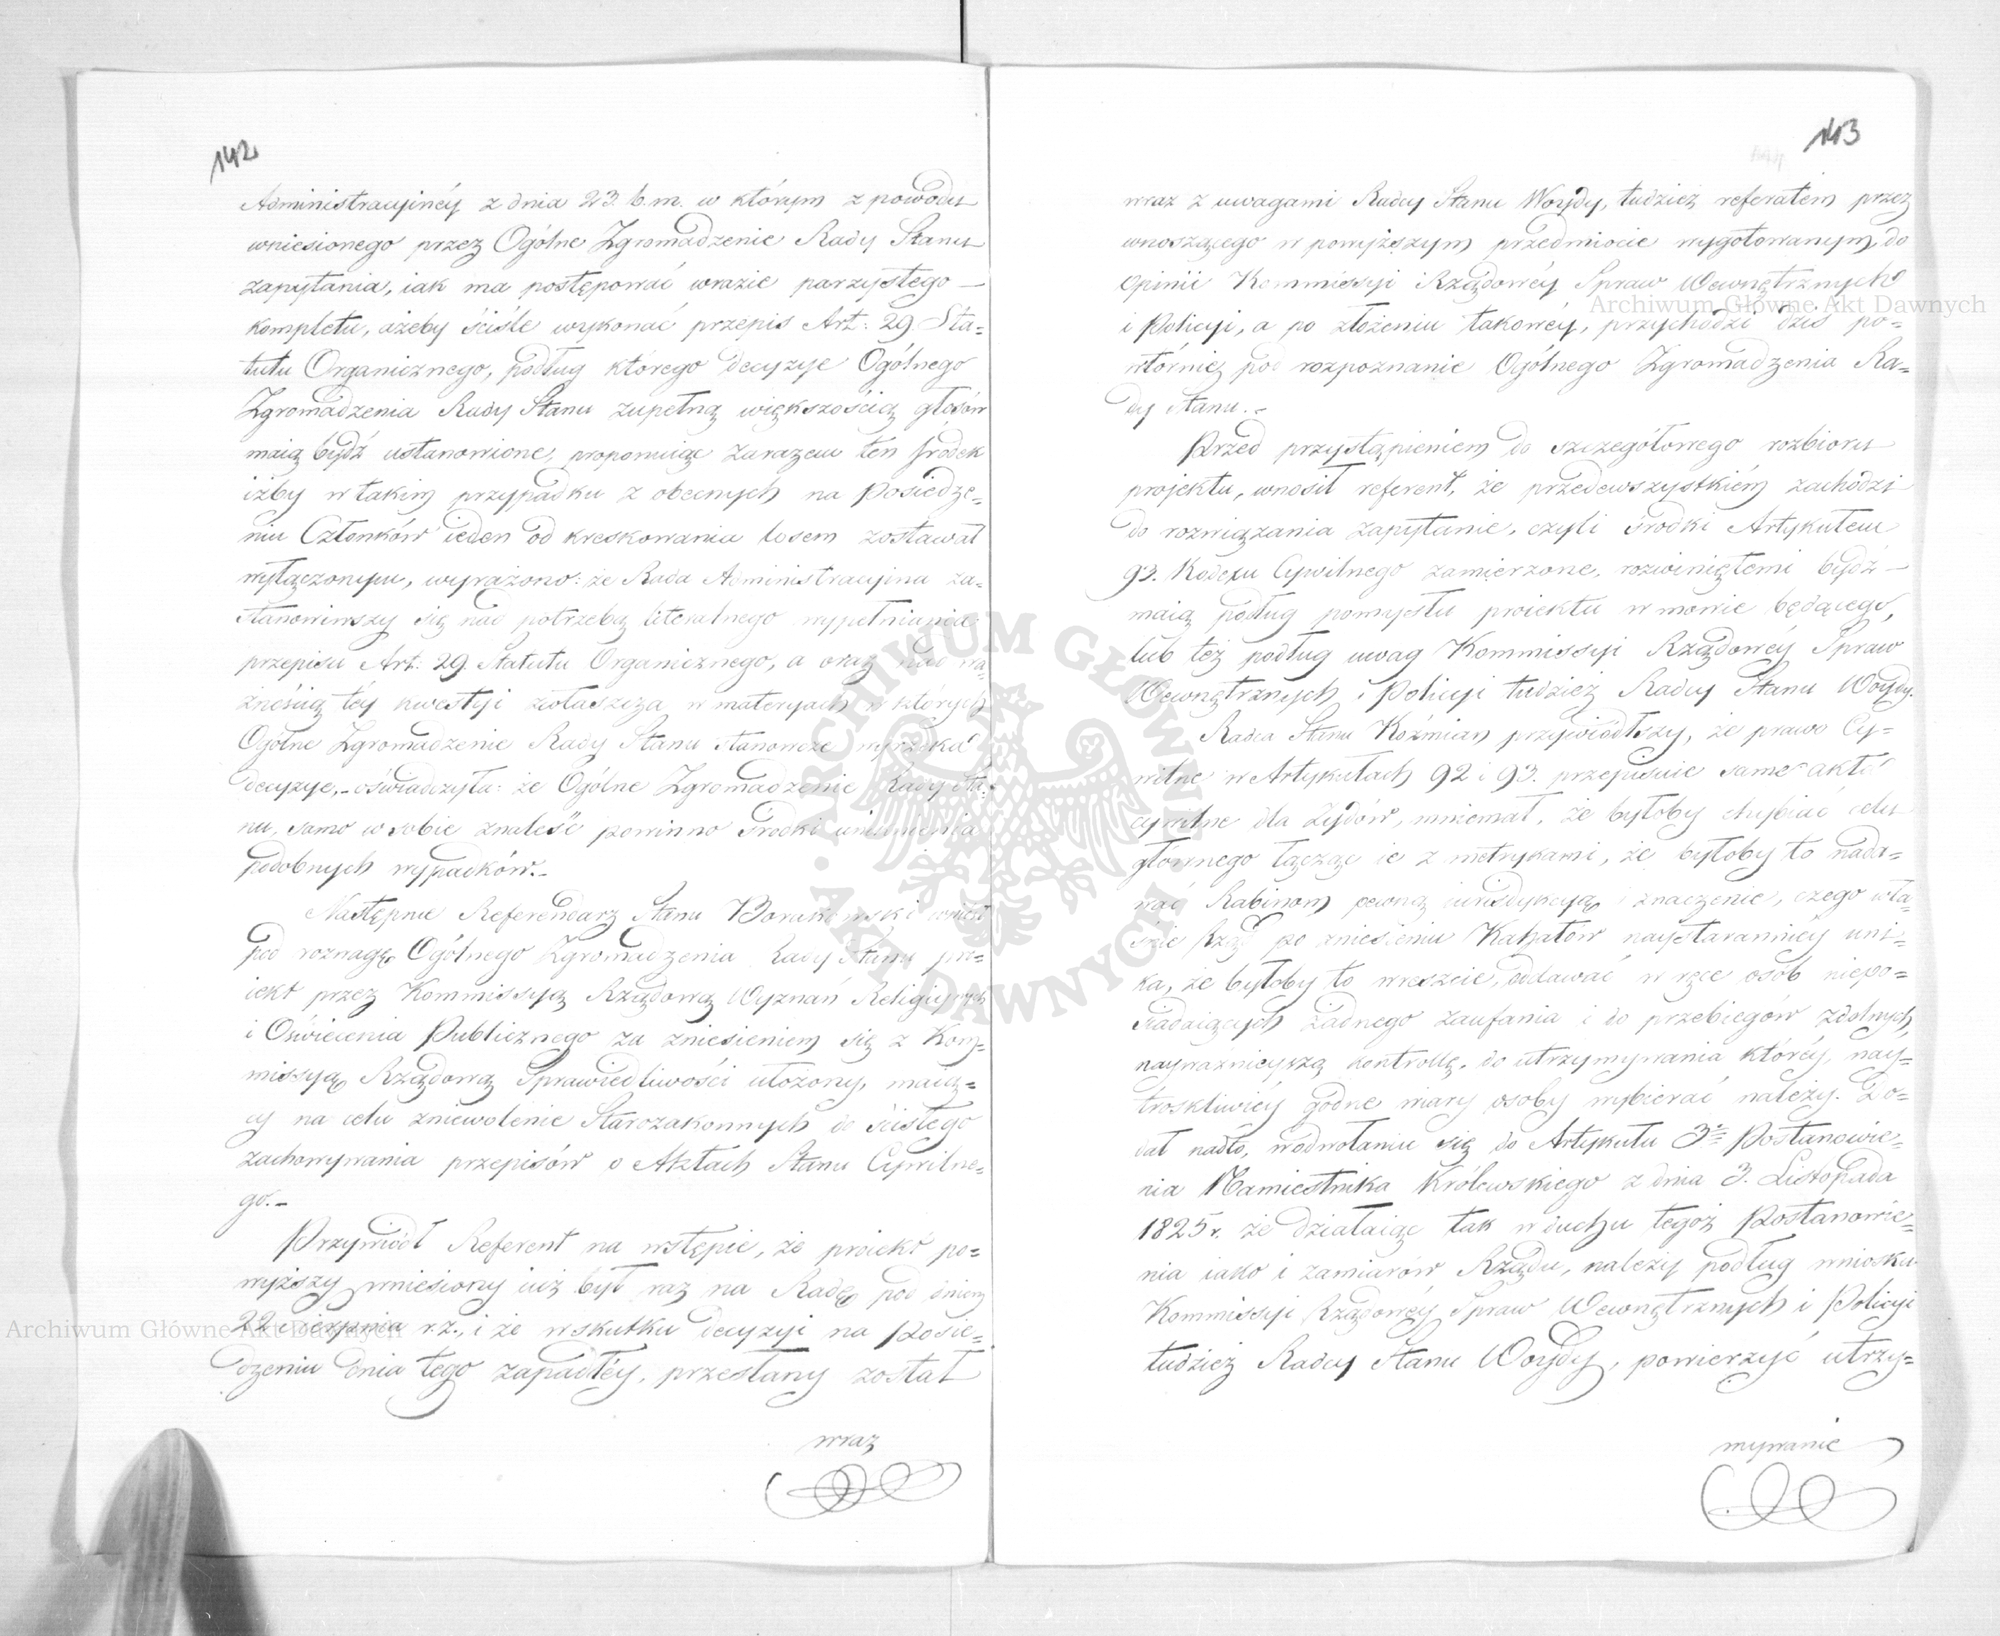 142
Administracyjnéy z dnia 23. b. m. w którym z powodu
wniesionego przez Ogólne Zgromadzenie Rady Stanu
zapytania, iak ma postępować wrazie parzystego —
kompletu, ażeby ściśle wykonać przepis Art: 29. Sta=
tutu Organicznego, podług którego decyzye Ogólnego
Zgromadzenia Rady Stanu zupełną większością głosów
maią bydź ustanowione, proponuiąc zarazem ten środek
iżby w takim przypadku z obecnych na Posiedze=
niu Członków ieden od kreskowania losem zostawał
wyłączonym, wyrażono: że Rada Administracyina za=
stanowiwszy się nad potrzebą literalnego wypełniania
przepisu Art: 29. Statutu Organicznego, a oraz nad wa=
żnością téy kwestyi zwłaszcza w materyach w których
Ogólne Zgromadzenie Rady Stanu stanowcze wyrzeka
decyzye, – oświadczyła: że Ogólne Zgromadzenie Rady Sta=
nu, samo w sobie znaleść powinno środki uniknienia
podobnych wypadków. –
Następnie Referendarz Stanu Borakowski wniósł
pod rozwagę Ogólnego Zgromadzenia Rady Stanu pro=
iekt przez Kommissyą Rządową Wyznań Religiynych
i Oświecenia Publicznego za zniesieniem się z Kom=
missyą Rządową Sprawiedliwości ułożony, maią=
cy na celu zniewolenie Starozakonnych do ścisłego
zachowywania przepisów o Aktach Stanu Cywilne=
go. –
Przywiódł Referent na wstępie, że proiekt po=
wyższy wniesiony iuż był raz na Radę pod dniem
22 Sierpnia r. z., i że w skutku decyzyi na Posie=
dzeniu dnia tego zapadłéy, przesłany został
wraz
143
wraz z uwagami Radcy Stanu Woydy, tudzież referatem przez
wnoszącego w powyższym przedmiocie wygotowanym, do
Opinii Kommissyi Rządowéy Spraw Wewnętrznych
i Policyi, a po złożeniu takowéy, przychodzi dziś po=
wtórnie pod rozpoznanie Ogólnego Zgromadzenia Ra=
dy Stanu. –
Przed przystąpieniem do szczegółowego rozbioru
projektu, wnosił referent, że przedewszystkiém zachodzi
do rozwiązania zapytanie, czyli środki Artykułem
93. Kodexu Cywilnego zamierzone, rozwiniętemi bydź —
maią podług pomysłu proiektu w mowie będącego,
lub też podług uwag Kommissyi Rządowéy Spraw
Wewnętrznych i Policyi tudzież Radcy Stanu Woydy.
Radca Stanu Koźmian przywiódłszy, że prawo Cy=
wilne w Artykułach 92 i 93. przepisuie same akta
cywilne dla Żydów, mniemał, że byłoby chybiać celu
głównego łącząc ie z metrykami, że byłoby to nada=
wać Rabinom pewną iurisdykcyą i znaczenie, czego wła=
śnie Rząd po zniesieniu Kahałów naystaranniéy uni=
ka, że byłoby to wreszcie, oddawać w ręce osób niepo=
siadaiących żadnego zaufania i do przebiegów zdolnych,
nayważnieyszą kontrollę, do utrzymywania któréy, nay=
troskliwiéy godne wiary osoby wybierać należy. Do=
dał nadto, w odwołaniu się do Artykułu 3º Postanowie=
nia Namiestnika Królewskiego z dnia 3. Listopada
1825 r. że działaiąc tak w duchu tegoż Postanowie=
nia iako i zamiarów Rządu, należy podług wniosku
Kommissyi Rządowéy Spraw Wewnętrznych i Policyi
tudzież Radcy Stanu Woydy, powierzyć utrzy=
mywanie
Archiwum Główne Akt Dawnych
Archiwum Główne Akt Dawnych
ARCHIWUM GŁÓWNE AKT DAWNYCH